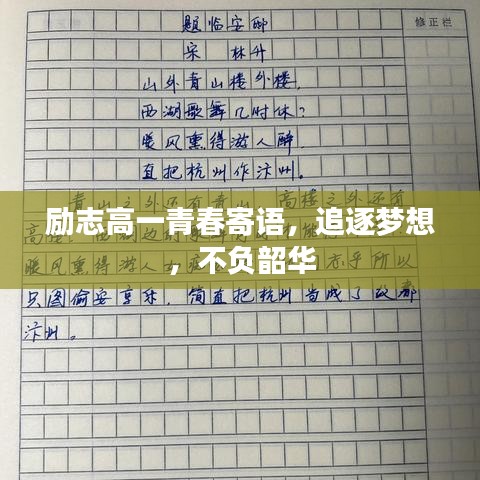 题临安邸
修正栏
宋 林升
山外青山楼外楼，
西湖歌舞几时休？
暖风熏得游人醉，
直把杭州作汴州。
青山之外还有青山，高楼之外还有
励志高一青春寄语，追逐梦想
，不负韶华
暖风熏得游人 所以
只图偷安享乐，简直把杭州当成了故都
汴州。